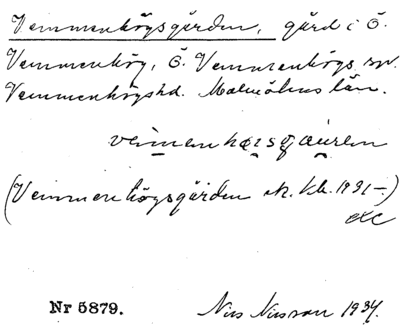 Vemmenhögsgården, gård i Ö.
Vemmenhög, Ö. Vemmenhögs sn.
Vemmenhögshd. Malmöhus län.
(Vemmenhögsgården sk. kb. 1931-)
etc
Nr 5879.
Nils Nilsson 1934.